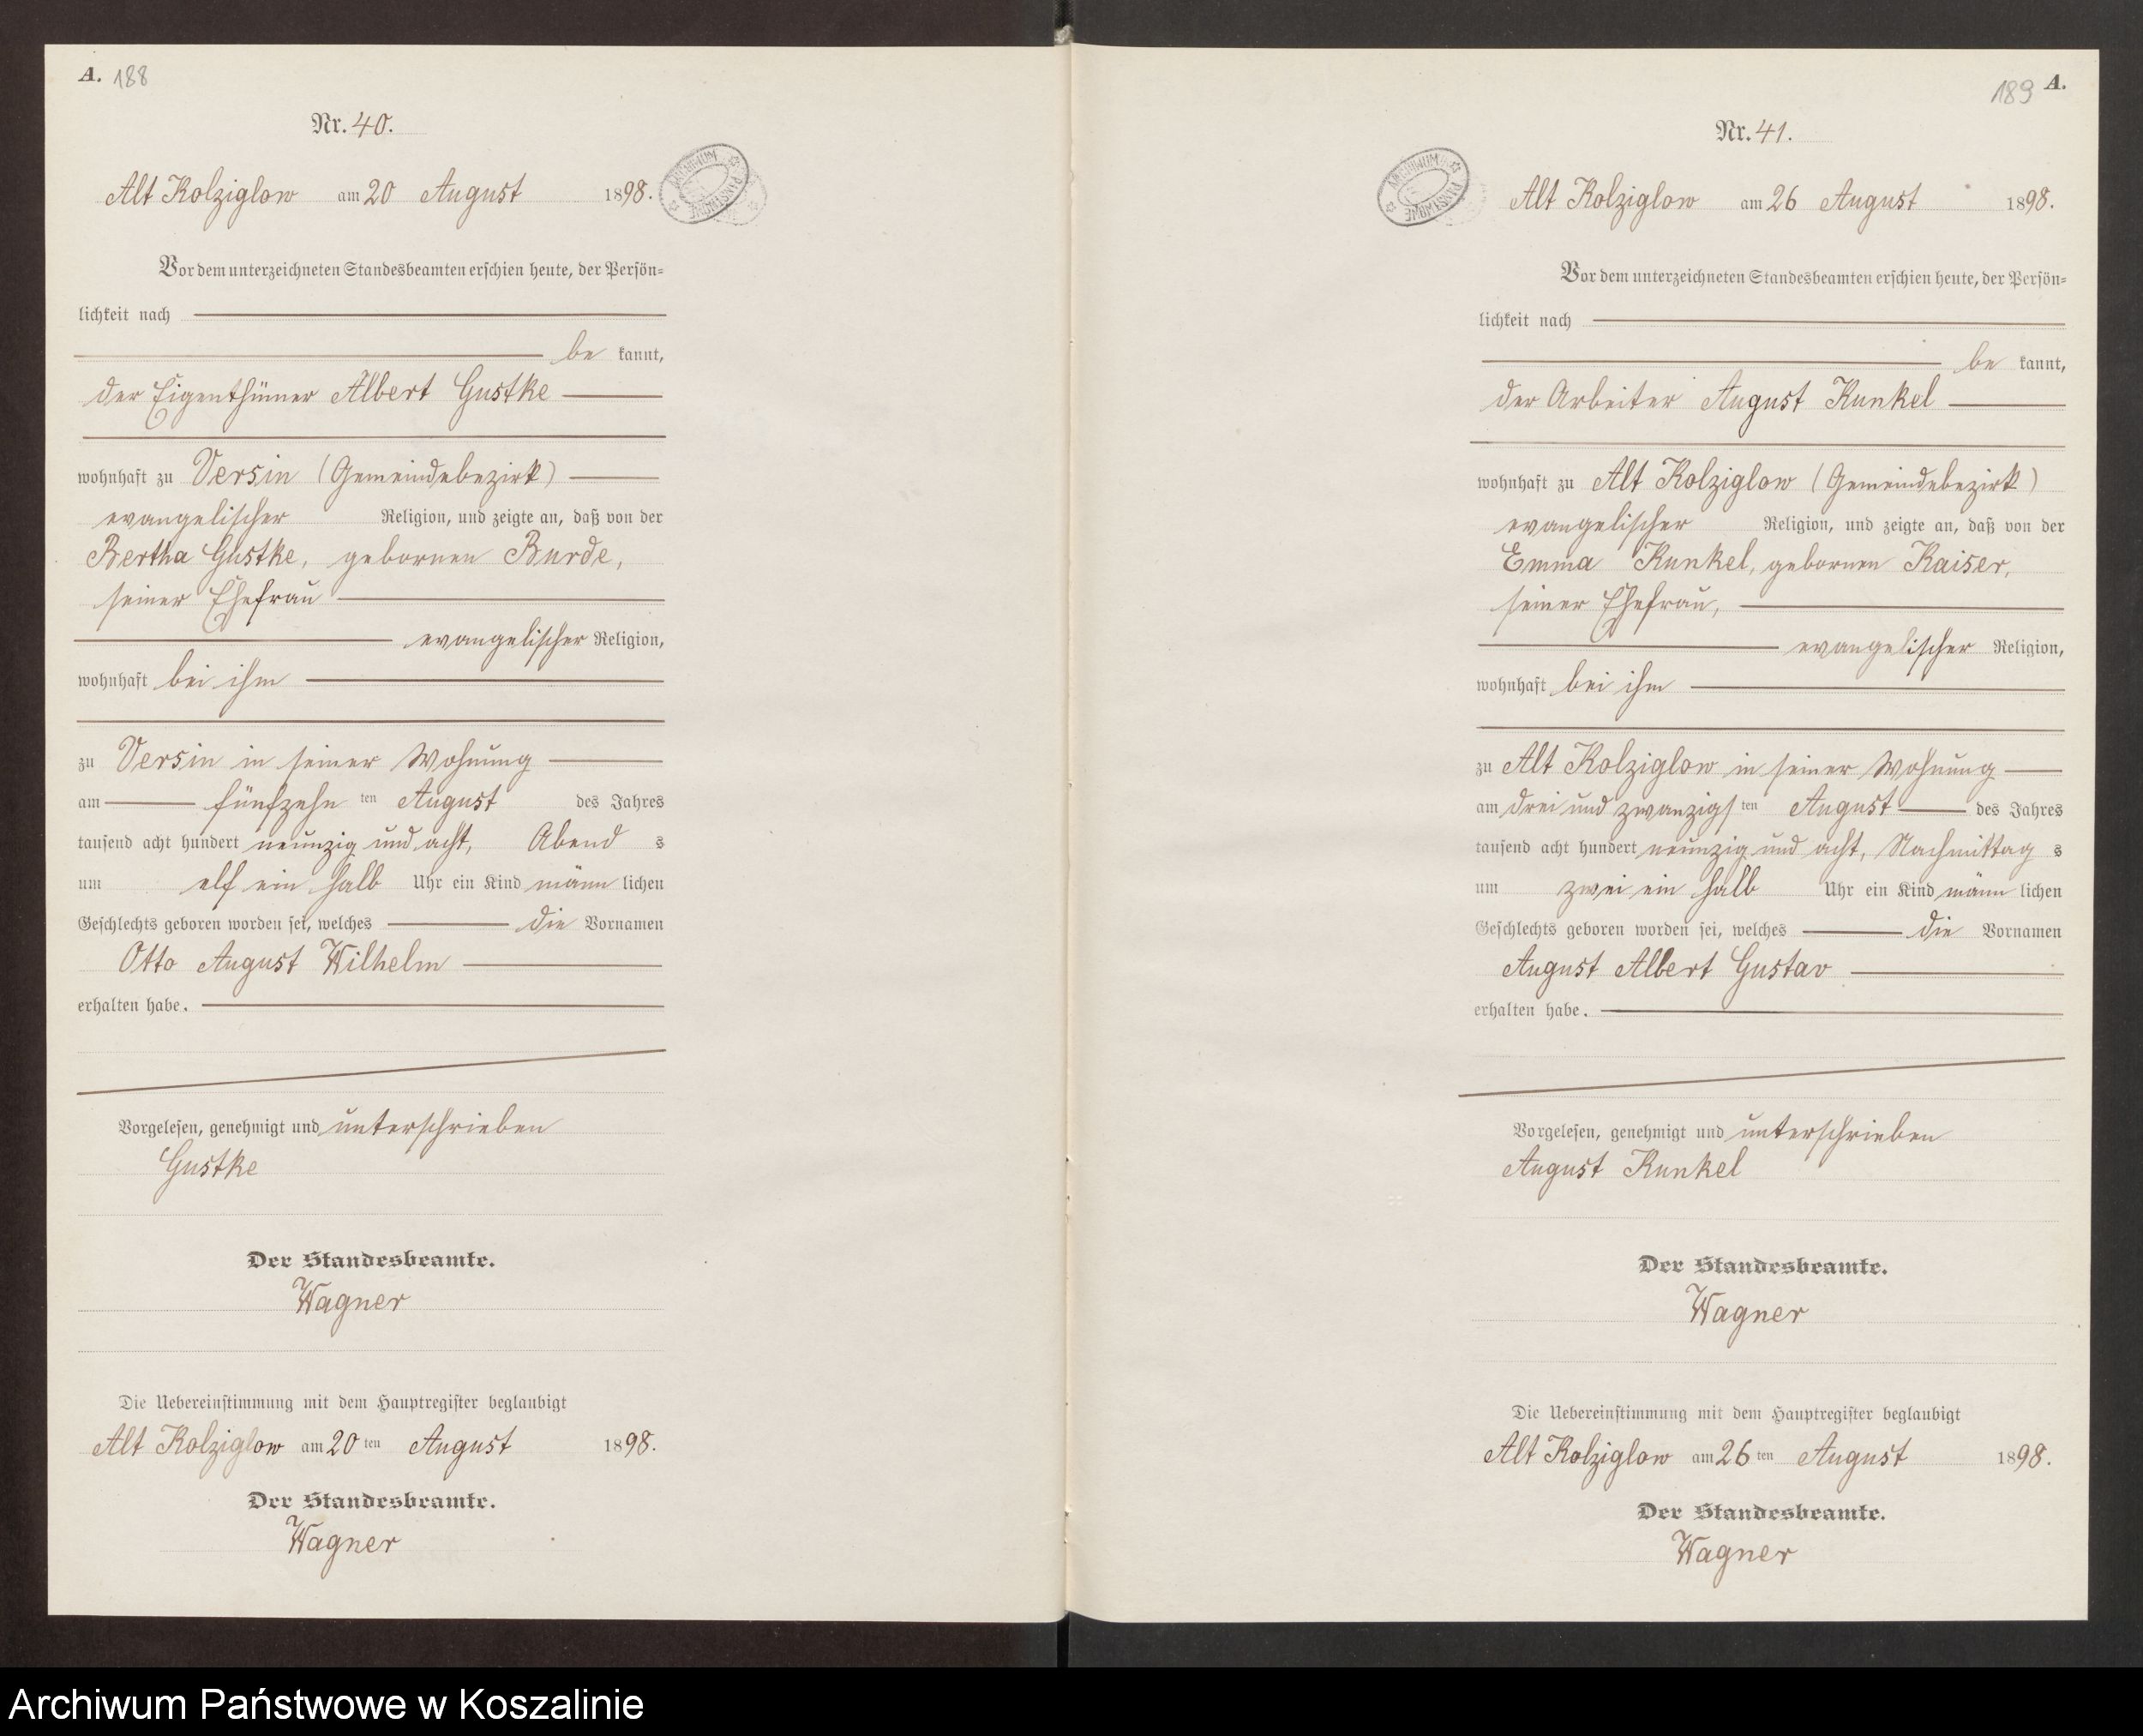 A. 188
Nr. 40.
Alt Kolziglow am 20 August 1898.
Vor dem unterzeichneten Standesbeamten erschien heute, der Persön=
lichkeit nach
be kannt,
der Eigenthümer Albert Gustke
wohnhaft zu Versin (Gemeindebezirk)
evangelischer Religion, und zeigte an, daß von der
Bertha Gustke, gebornen Burde,
seiner Ehefrau
evangelischer Religion,
wohnhaft bei ihm
zu Versin in seiner Wohnung
am fünfzehn ten August des Jahres
tausend acht hundert neunzig und acht, Abend s
um elf ein halb Uhr ein Kind männ lichen
Geschlechts geboren worden sei, welches die Vornamen
Otto August Wilhelm
erhalten habe.
Vorgelesen, genehmigt und unterschrieben
Gustke
Der Standesbeamte.
Wagner
Die Uebereinstimmung mit dem Hauptregister beglaubigt
Alt Kolziglow am 20 ten August 1898.
Der Standesbeamte.
Wagner
ARCHIWUM PAŃSTWOWE
189 A.
Nr. 41.
ARCHIWUM PAŃSTWOWE
Alt Kolziglow am 26 August 1898.
Vor dem unterzeichneten Standesbeamten erschien heute, der Persön=
lichkeit nach
be kannt,
der Arbeiter August Kunkel
wohnhaft zu Alt Kolziglow (Gemeindebezirk)
evangelischer Religion, und zeigte an, daß von der
Emma Kunkel, gebornen Kaiser,
seiner Ehefrau,
evangelischer Religion,
wohnhaft bei ihm
zu Alt Kolziglow in seiner Wohnung
am drei und zwanzigs ten August des Jahres
tausend acht hundert neunzig und acht, Nachmittag s
um zwei ein halb Uhr ein Kind männ lichen
Geschlechts geboren worden sei, welches die Vornamen
August Albert Gustav
erhalten habe.
Vorgelesen, genehmigt und unterschrieben
August Kunkel
Der Standesbeamte.
Wagner
Die Uebereinstimmung mit dem Hauptregister beglaubigt
Alt Kolziglow am 26 ten August 1898.
Der Standesbeamte.
Wagner
Archiwum Państwowe w Koszalinie